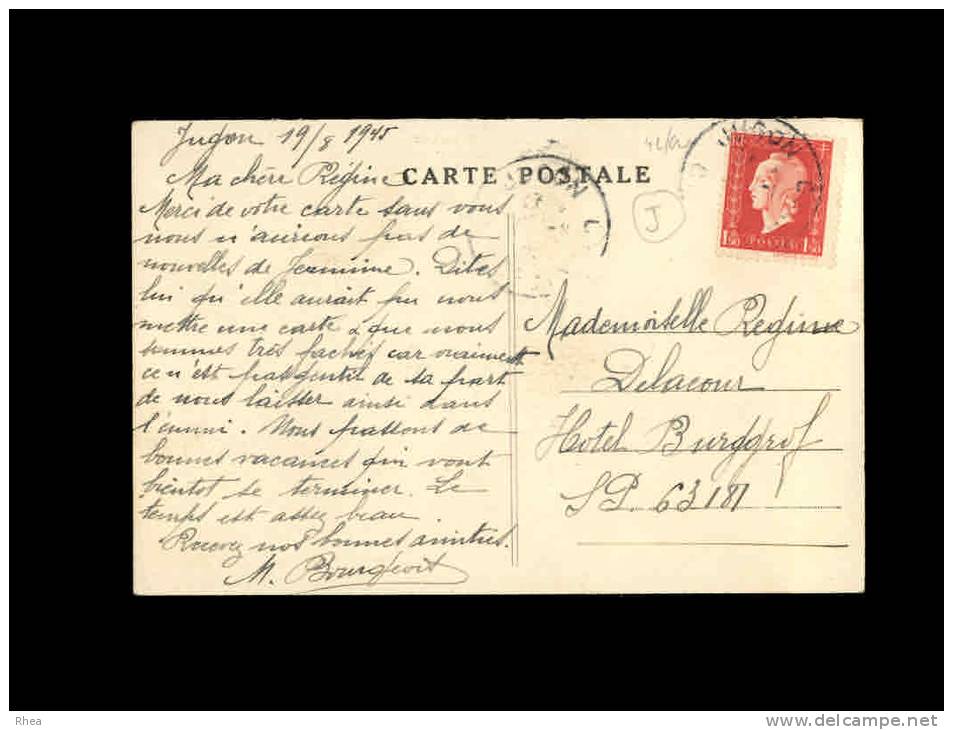 Jugon 19/8 1945
Ma chère Régine
Merci de votre carte sans vous
nous n'aurions pas de
nouvelles de Jeannine. Dites
lui qu'elle aurait pu nous
mettre une carte & que nous
sommes très fachés car vraiment
ce n'est pas gentil de sa part
de nous laisser ainsi dans
l'ennui. Nous passons de
bonnes vacances qui vont
bientot se terminer. Le
temps est assez beau
Recevez nos bonnes amitiés.
M. Bourgeois
CARTE POSTALE
JUGON
J
JUGON
Mademoiselle Régine
Delacour
Hotel Burggrof
S.P. 63181
Rhea
www.delcampe.net